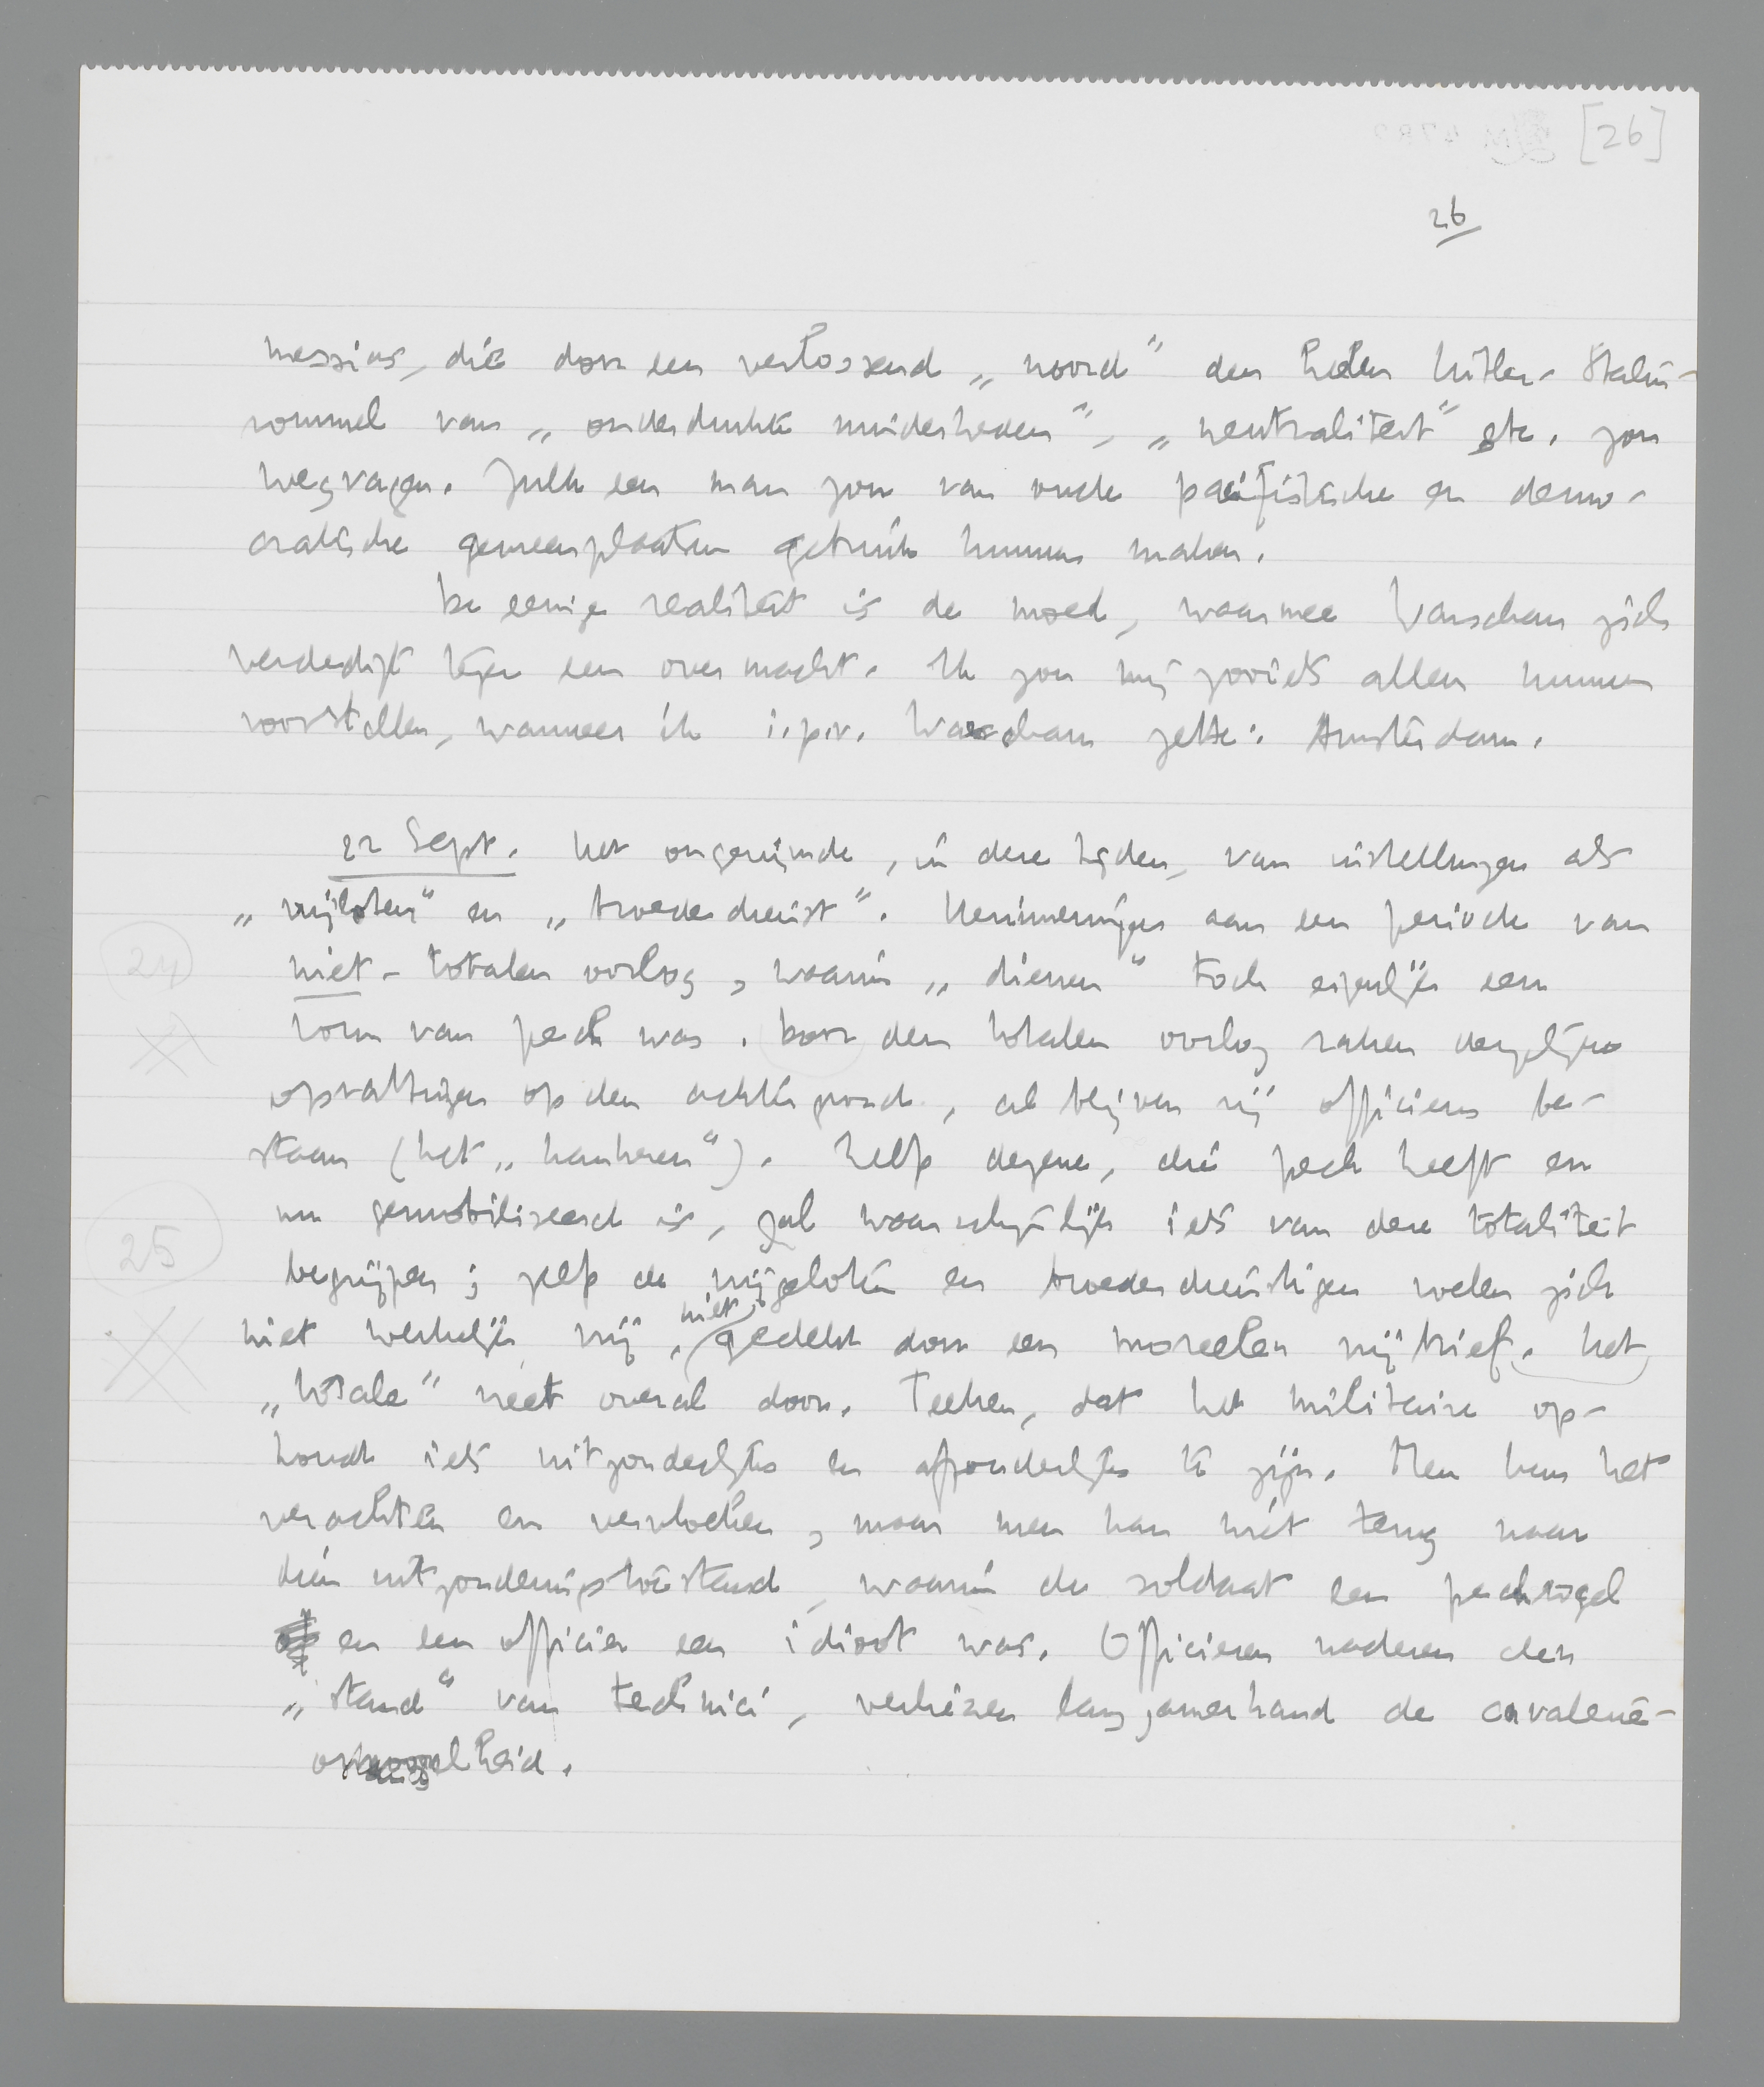 [26]
26
messias, die door een verlossend „woord" den heelen Hitler-Stalin-
rommel van „onderdrukte minderheden", „neutraliteit" etc. zou
wegvagen. Zulk een man zou van oude pacifistische en demo-
cratische gemeenplaatsen gebruik kunnen maken.
De eenige realiteit is de moed, waarmee Warschau zich
verdedigt tegen een overmacht. Ik zou mij zooiets alleen kunnen
voorstellen, wanneer ik i.p.v. Warschau zette: Amsterdam.
22 Sept. Het ongerijmde, in deze tijden, van instellingen als
„vrijloten" en „broederdienst". Herinneringen aan een periode van
niet-totalen oorlog, waarin „dienen" toch eigenlijk een
vorm van pech was. Door den totalen oorlog raken dergelijke
opvattingen op den achtergrond, al blijven wij officieren be-
staan (het „kankeren"). Zelfs degene, die pech heeft en
nu gemobiliseerd is, zal waarschijnlijk iets van deze totaliteit
begrijpen; zelfs de vrijgelote en broederdienstigen voelen zich
niet werkelijk vrij, niet gedekt door een moreelen vrijbrief. Het
„totale" vreet overal door. Teeken, dat het militaire op-
houdt iets uitzonderlijks en afzonderlijks te zijn. Men kan het
verachten en vervloeken, maar men kan niet terug naar
dien uitzonderingstoestand, waarin de soldaat een pechvogel
en een officier een idioot was. Officieren naderen den
„stand" van technici, verliezen langzamerhand de cavalerie-
24
25